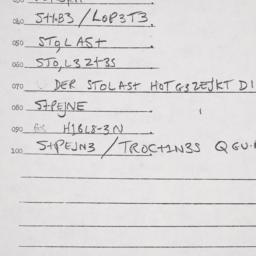 040 S+HB3 / LOP3T3
050 STOLAST
060 STO,L3Z+3S
070 DER STOLAST HOTG3ZEJKT DI
080 S+PEJNE
090 H1BL8-3N
100 S+PEJN3 / TROC+1N3S